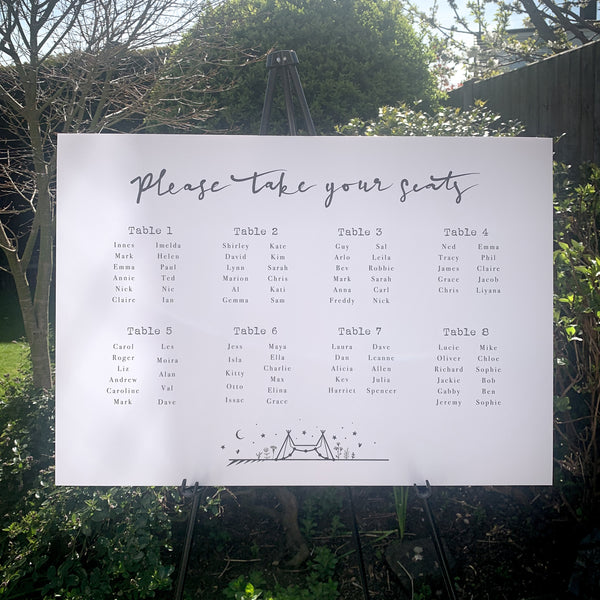 Please take your seats
Table 1
Innes Imelda
Mark Helen
Emma Paul
Annie Ted
Nick Nic
Claire Ian
Table 2
Shirley Kate
David Kim
Lynn Sarah
Marion Chris
Al Kati
Gemma Sam
Table 3
Guy Sal
Arlo Leila
Bev Robbie
Mark Sarah
Anna Carl
Freddy Nick
Table 4
Ned Emma
Tracy Phil
James Claire
Grace Jacob
Chris Liyana
Table 5
Carol Les
Roger Moira
Liz Alan
Andrew Val
Caroline Dave
Mark
Table 6
Jess Maya
Isla Ella
Kitty Charlie
Otto Max
Issac Elina
Grace
Table 7
Laura Dave
Dan Leanne
Alicia Allen
Kev Julia
Harriet Spencer
Table 8
Lucie Mike
Oliver Chloe
Richard Sophie
Jackie Bob
Gabby Ben
Jeremy Sophie